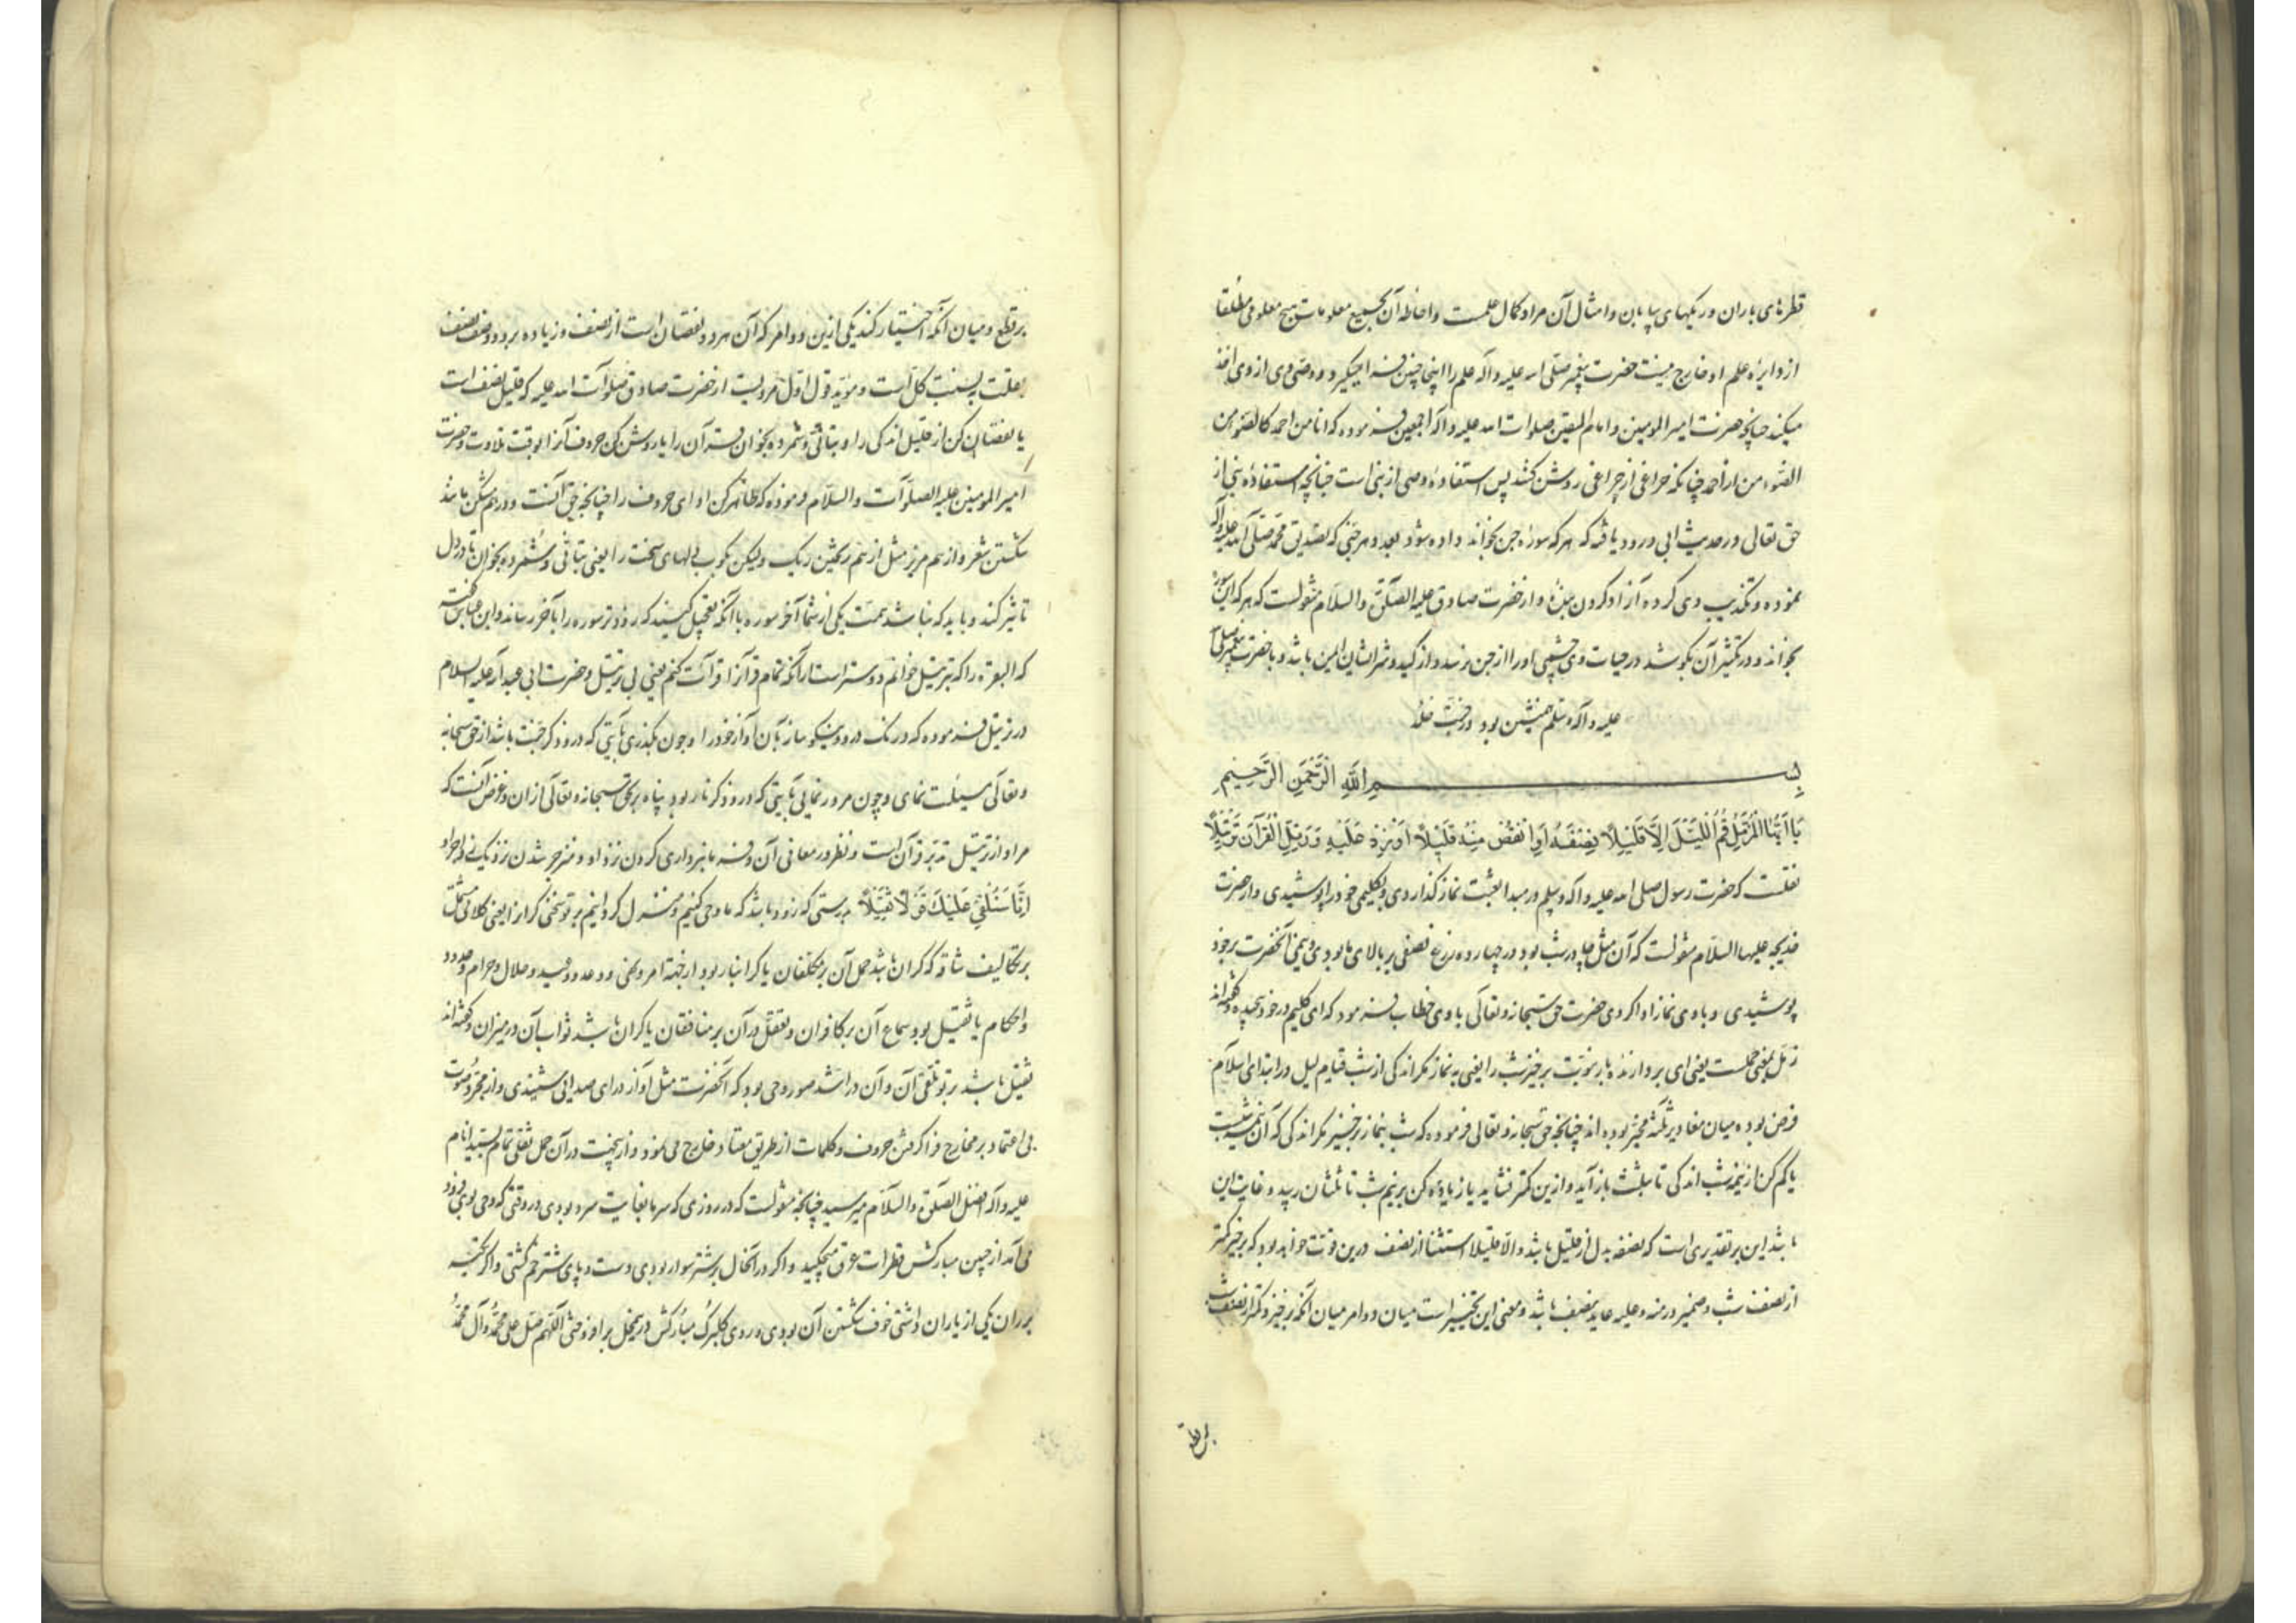 قطرهای باران و ریکهای بیابان و امثال آن مراد کمال علمست و احاطه آن بجمیع معلومات هیچ معلومی مطلقا
از دایره علم او خارج نیست حضرت پیغمبر صلی الله علیه و اله علم را اینجا چنین فرا میگیرد و وصی وی از وی اخذ
میکند چنانچه حضرت امیر المومنین و امام المتقین صلوات الله علیه و اله اجمعین فرموده که انا من احمد کالضوء من
الضوء من از احمد چنانکه چراغی از چراغی روشن کنند پس استفاده وصی از نبی است چنانچه استفاده نبی از
حق تعالی و در حدیث ابی ورود یافته که هر که سوره جن بخواند داده شود بعدد هر جنی که تصدیق محمد صلی الله علیه و آله
نموده و تکذیب وی کرده آزاد کردن بنده و از حضرت صادق علیه الصلوة والسلام منقولست که هر که این سوره
بخواند و در تکثیر آن بکوشد در حیات وی چشمی او را از جن نرسد و از کید و شر ایشان ایمن باشد و با حضرت پیغمبر صلی
علیه و اله و سلم همنشین بود در جنت خلد
بسم الله الرحمن الرحیم
يَا أَيُّهَا الْمُزَّمِّلُ قُمِ اللَّيْلَ إِلَّا قَلِيلًا نِصْفَهُ أَوِ انْقُصْ مِنْهُ قَلِيلًا أَوْ زِدْ عَلَيْهِ وَرَتِّلِ الْقُرْآنَ تَرْتِيلًا
نقلست که حضرت رسول صلی الله علیه و اله و سلم در مبدا بعثت نماز کذاردی و بکلیمی خود را پوشیدی و از حضرت
خدیجه علیها السلام منقولست که آن مثل چادر شب بود در چهارده زرع نصفی بر بالای ما بودی و نیمی آنحضرت بر خود
پوشیدی و باوی نماز ادا کردی حضرت حق سبحانه و تعالی باوی خطاب فرمود که ای کلیم در خود پیچیده و گفته‌اند
زمل بمعنی حملست یعنی ای بردارنده بار نوبت برخیز شب را یعنی به نماز مکر اندکی از شب قیام لیل در ابتدای اسلام
فرض بوده میان مقادیر ثلثه مخیر بوده اند چنانچه حق سبحانه و تعالی فرموده که شب بنماز برخیز مکر اندکی که آن نیمه شبست
یا کم کن از نیمه شب اندکی تا بثلث باز آید و ازین کمتر نشاید یا زیاده کن بر نیم شب تا بثلثان رسد و غایت این
باشد این بر تقدیری است که نصفه بدل از قلیل باشد و الا قلیلا استثنا از نصف درین وقت خواهد بود که برخیز کمتر
از نصف شب و ضمیر در منه و علیه عاید بنصف باشد و معنی این تخییر است میان دو امر میان آنکه برخیزد کمتر از نصف شب
بر قطع
بر قطع و میان آنکه اختیار کند یکی ازین دو امر که آن هر دو نقصان است از نصف و زیاده بر دو وصف نصف
بقلت بنسبت کل است و موید قول اول مرویست از حضرت صادق صلوات الله علیه که قلیل نصف است
یا نقصان کن از قلیل اندکی را و بتانی و شمرده بخوان قرآن را یا روشن کن حروف آنرا بوقت تلاوت و حضرت
امیر المومنین علیه الصلوات والسلام فرموده که ظاهر کن ادای حروف را چنانچه حق آنست و در هم مشکن مانند
شکستن شعر و از هم مریز مثل از هم ریختن ریک ولیکن بکوب دلهای سخت را یعنی بتانی و شمرده بخوان تا در دل
تاثیر کند و باید که نباشد همت یکی از شما آخر سوره با آنکه تعجیل کنید که زودتر سوره را بآخر رساند و ابن عباس گفته
که البقره را که بترتیل خوانم دوستر است از آنکه تمام قرآن را قرآئت کنم یعنی بی ترتیل و حضرت ابی عبدالله علیه السلام
در ترتیل فرموده که درنک در وی و نیکو ساز بآن آواز خود را و چون بگذری بآیتی که در و ذکر جنت باشد از حق سبحانه
و تعالی مسئلت نمای و چون مرور نمایی بآیتی که در و ذکر نار بود پناه بر بحق سبحانه و تعالی از آن و غرض آنست که
مراد از ترتیل تدبر قرآن است و نظر در معانی آن و فرمانبرداری کردن نزد او و منزجر شدن نزدیک
إِنَّا سَنُلْقِي عَلَيْكَ قَوْلًا ثَقِيلًا بدرستی که زود باشد که ما وحی کنیم و منزل کردانیم بر تو سخنی کرانرا یعنی کلامی مشتمل
بر تکالیف شاقه که کران باشد حمل آن بر مکلفان یا کرانبار بود از جهة امر و نهی و وعد و وعید و حلال و حرام و حدود
و احکام یا ثقیل بود سماع آن بر کافران و تعقل در آن بر منافقان یا کران باشد ثواب آن در میزان و گفته‌اند
ثقیل باشد بر تو تلقی آن و آن در اشد صور وحی بود که آنحضرت مثل آواز درای صدایی شنیدی و از مجرد صوت
بی اعتماد بر مخارج فرا گرفتن حروف و کلمات از طریق معتاد خارج می نمود و ازینجهت در آن حمل ثقلی تمام بسید انام
علیه و اله افضل الصلوة والسلام میرسید چنانچه منقولست که در روزی که سرما بغایت سرد بودی در وقتی که وحی بوی فرود
می آمد از جبین مبارکش قطرات عرق میچکید و اکر در آنحال بر شتر سوار بودی دست و پای شتر خم کشتی و اکر تکیه
بر ران یکی از یاران داشتی خوف شکستن آن بودی و روی کلبرک مبارکش برافروختی اللهم صل علی محمد و آل محمد